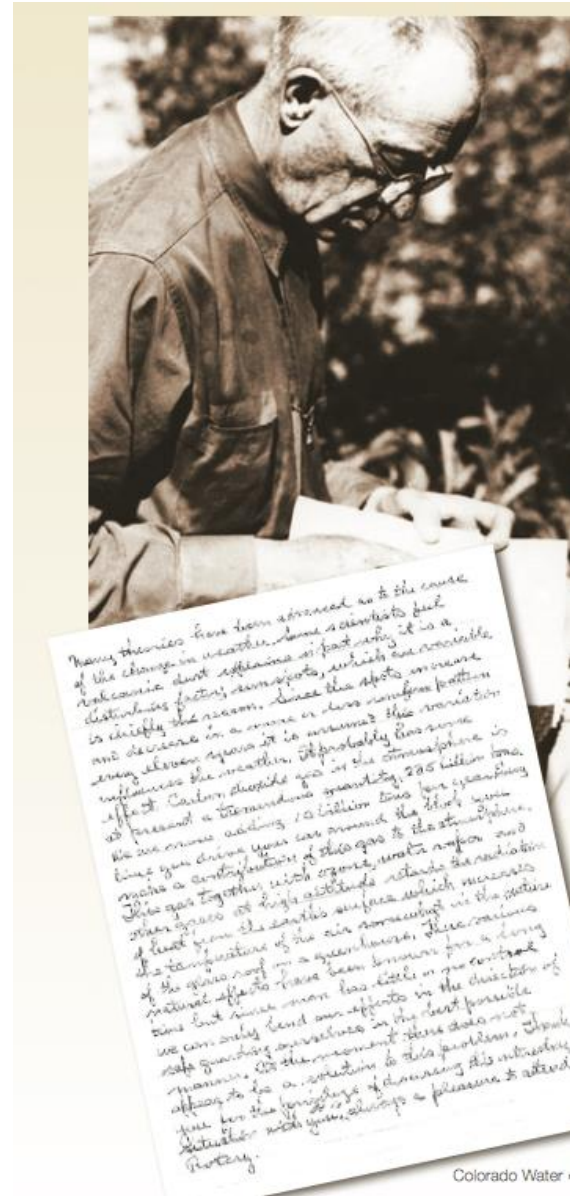 Many theories have been advanced as to the cause
of the change in weather. Some scientists feel
volcanic dust explains in part why it is a
disturbing factor, sunspots, which are variable
is chiefly the reason. Since the spots increase
and decrease in a more or less uniform pattern
every eleven years it is assumed this variation
influences the weather. It probably has some
effect. Carbon dioxide gas in the atmosphere is
at present a tremendous quantity, billion tons.
We are now adding billion tons per year. Every
time you drive your car around the block you
make a contribution of this gas to the atmosphere.
This gas together with ozone, water vapor and
other gases at high altitude retards the radiation
of heat from the earth's surface which increases
the temperature of the air somewhat in the picture
of the glass roof on a greenhouse. These various
natural effects have been known for a long
time but since man has little or no control
we can only bend our efforts in the direction of
safe guarding ourselves in the best possible
manner. At the moment there does not
appear to be a solution to this problem. Thank
you for the privilege of discussing this interesting
situation with you, always a pleasure to attend
Rotary.
Colorado Water